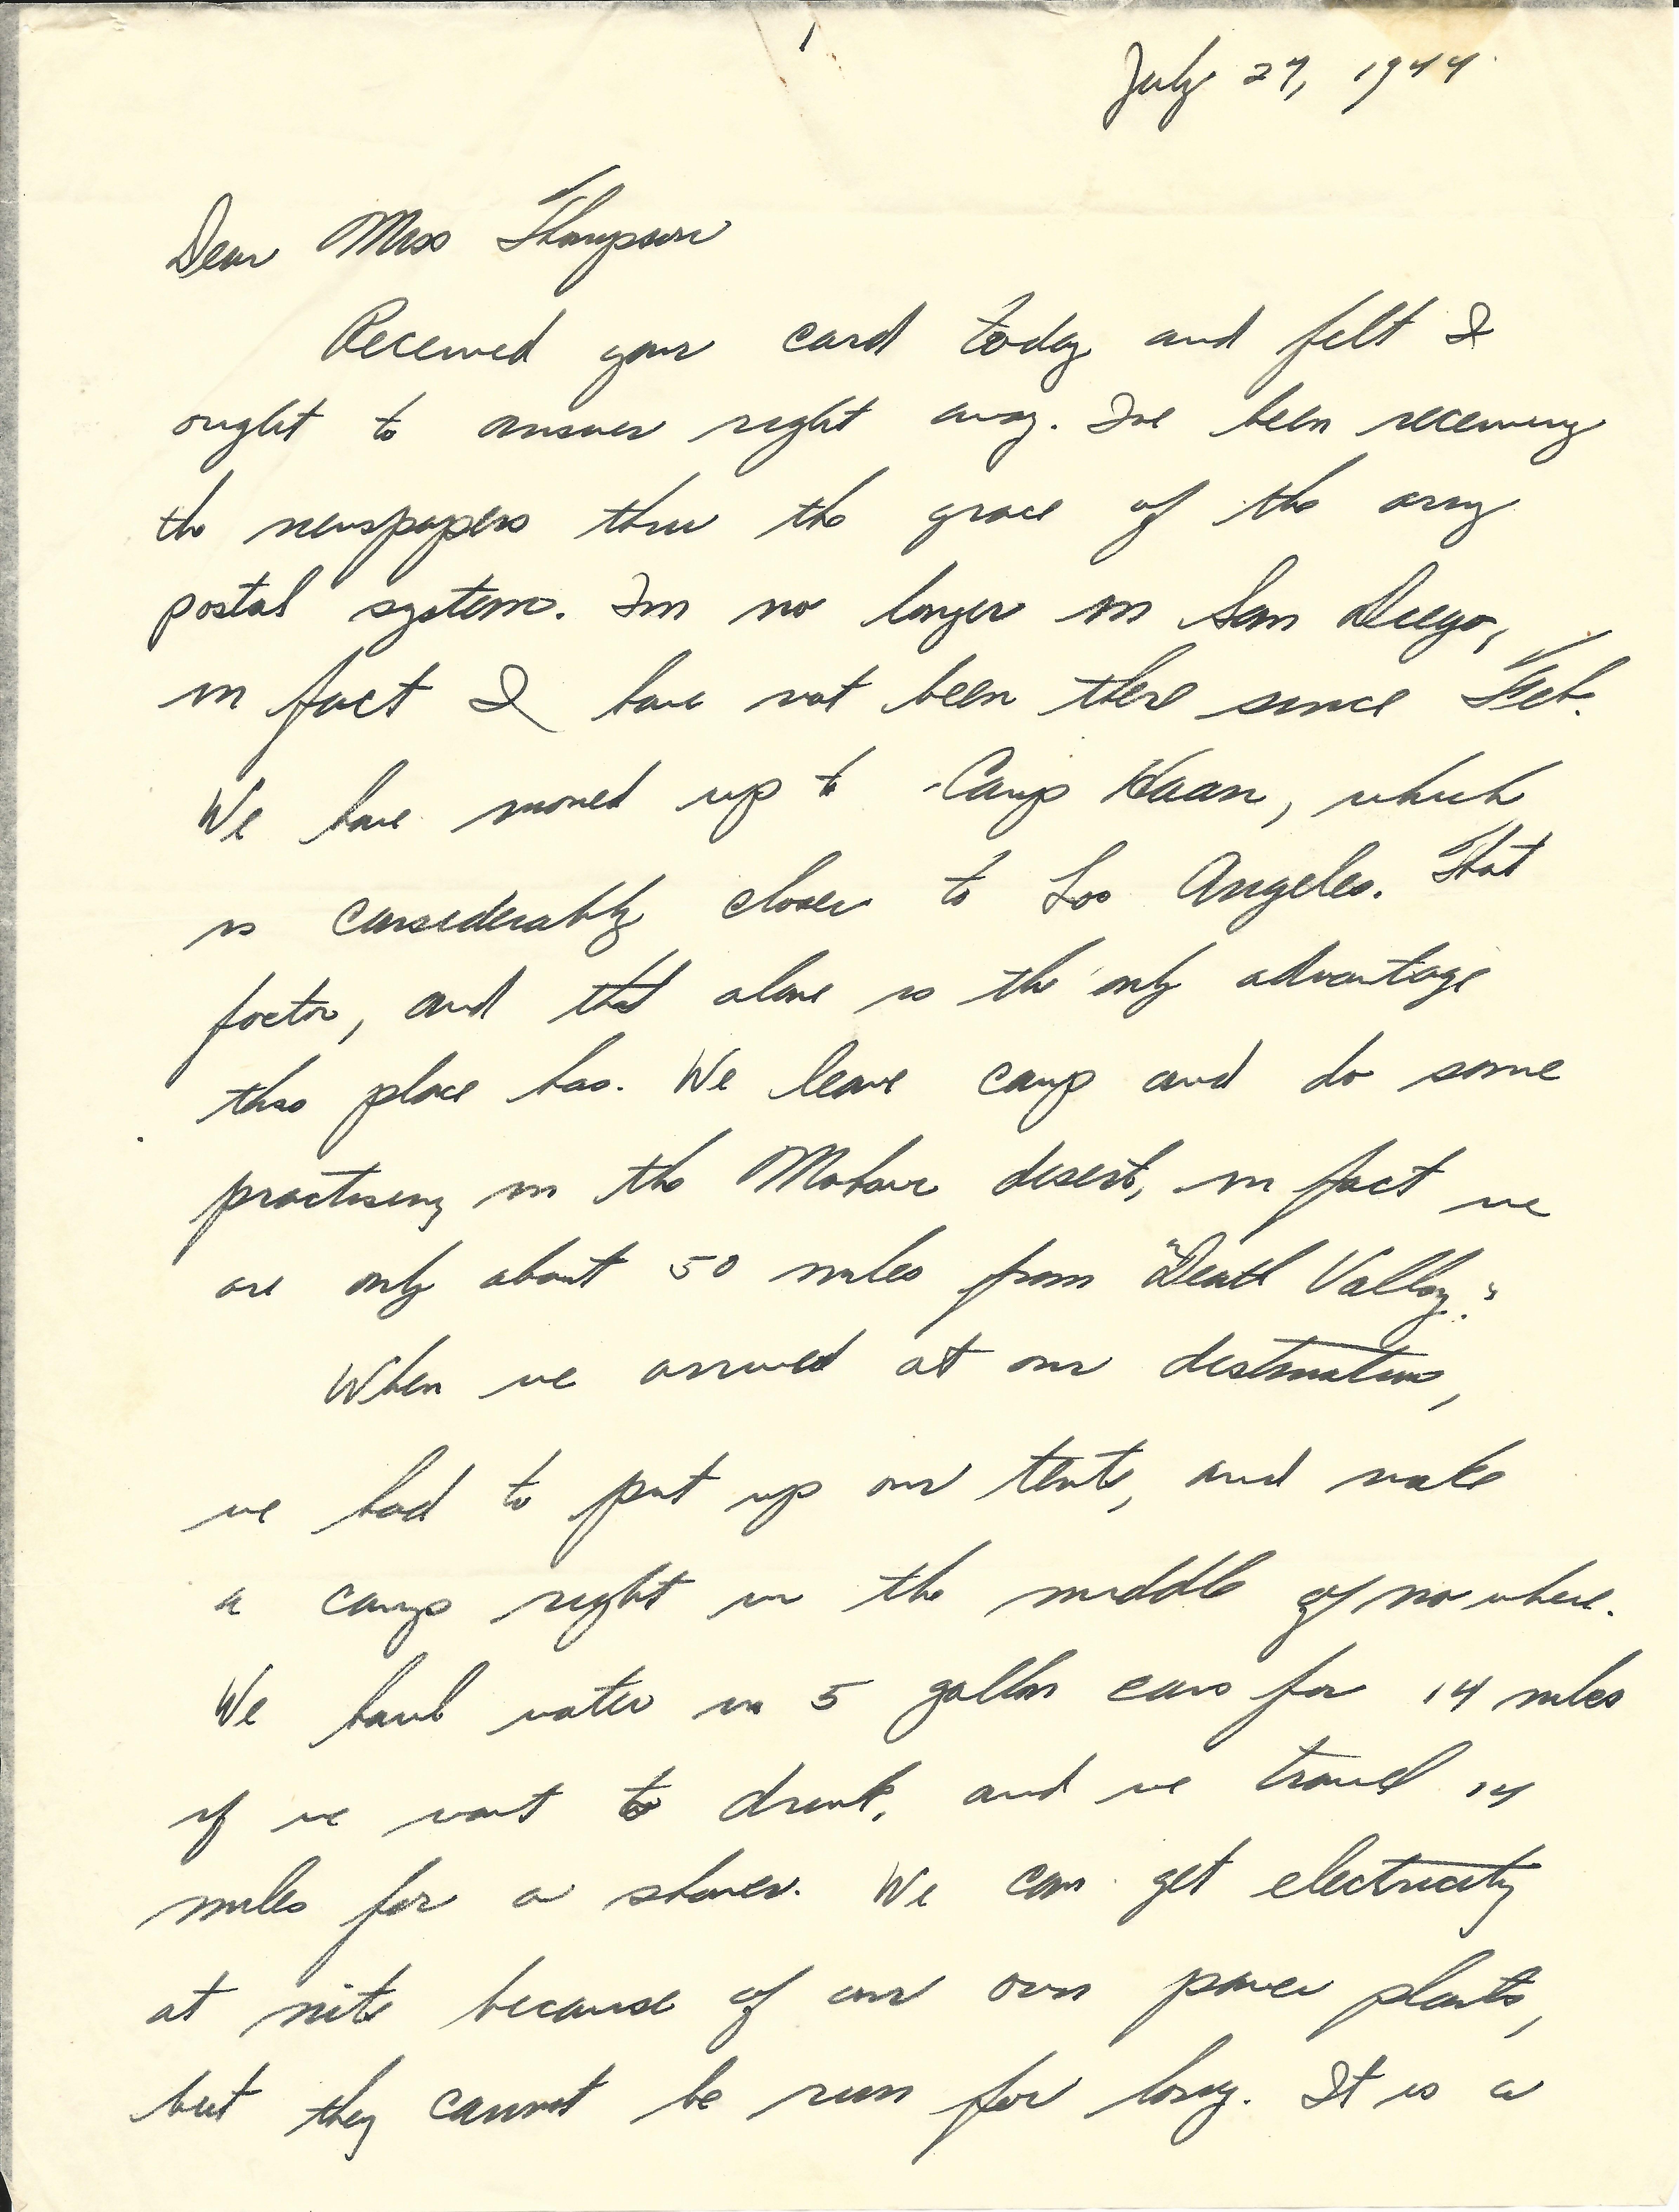 1
July 27, 1944
Dear Miss Thompson
Received your card today and felt I
ought to answer right away. I've been receiving
the newspapers thru the grace of the army
postal system. I'm no longer in San Diego,
in fact I have not been there since Feb.
We have moved up to Camp Haan, which
is considerably closer to Los Angeles. That
factor, and that alone is the only advantage
this place has. We leave camp and do some
practising in the Mohave desert, in fact we
are only about 50 miles from "Death Valley."
When we arrived at our destination,
we had to put up our tents, and make
a camp right in the middle of no where.
We haul water in 5 gallon cans for 14 miles
if we want to drink, and we travel 14
miles for a shower. We can get electricity
at nite because of our own power plants,
but they cannot be run for long. It is a